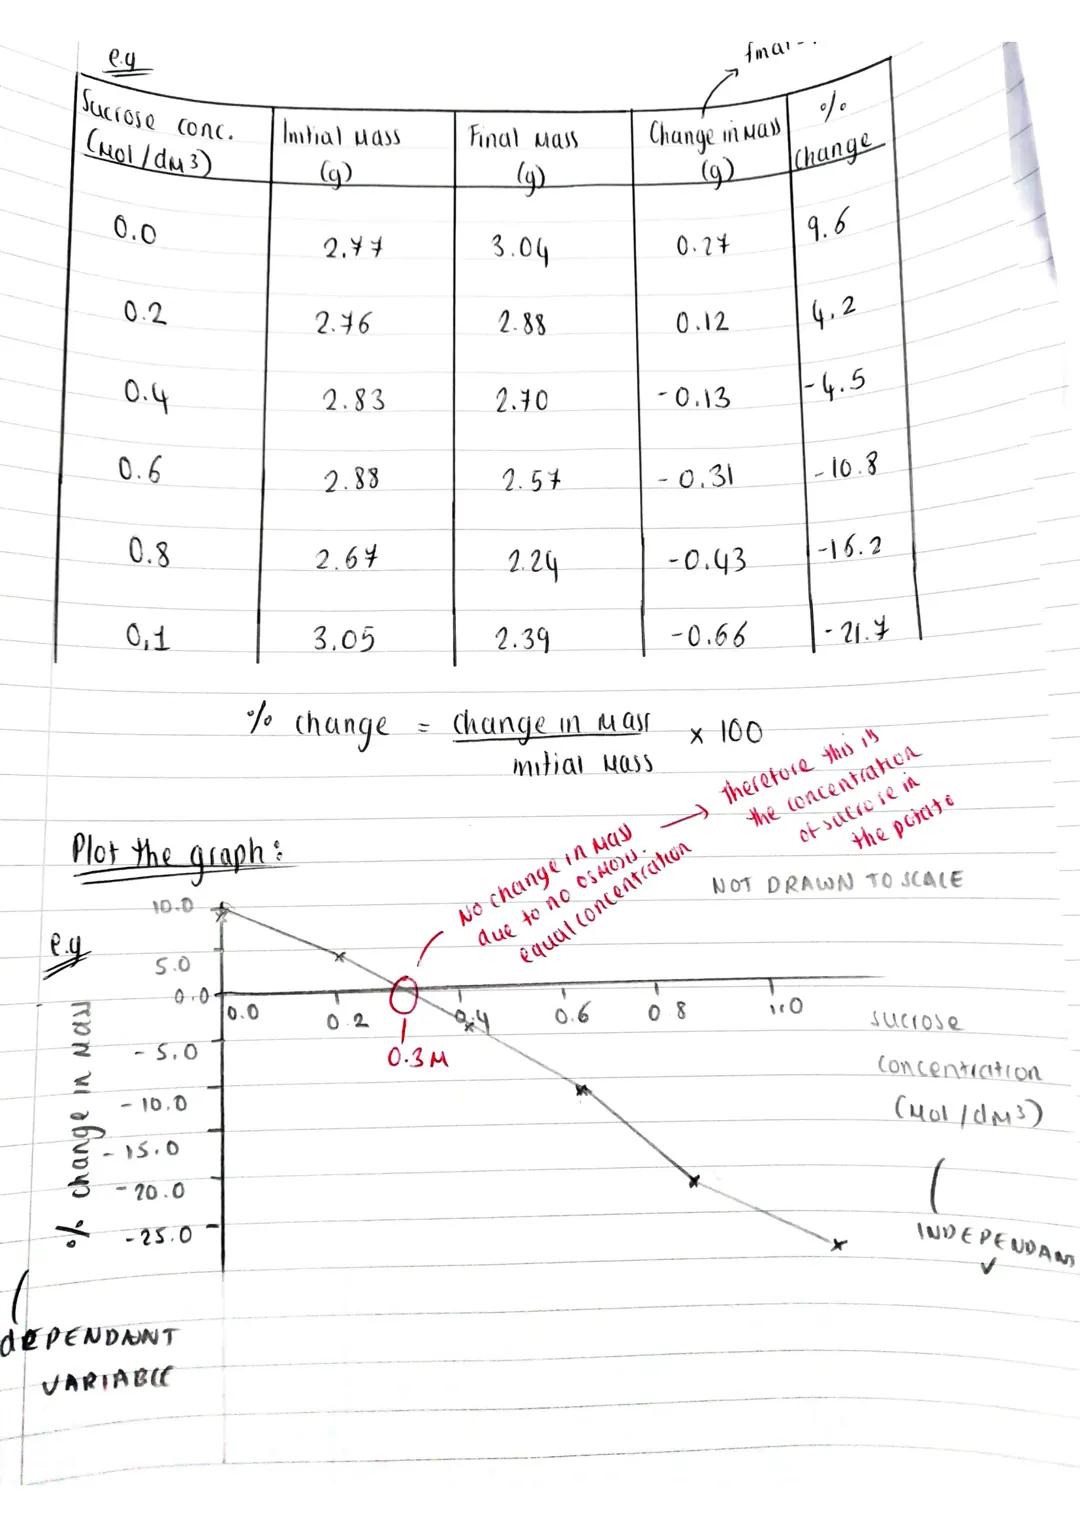 e.g
Sucrose conc. (Mol/dM3) | Initial Mass (g) | Final Mass (g) | Change in Mass (g) | % change
0.0 | 2.77 | 3.04 | 0.27 | 9.6
0.2 | 2.76 | 2.88 | 0.12 | 4.2
0.4 | 2.83 | 2.70 | -0.13 | -4.5
0.6 | 2.88 | 2.57 | -0.31 | -10.8
0.8 | 2.67 | 2.24 | -0.43 | -16.2
0,1 | 3.05 | 2.39 | -0.66 | -21.7
% change = change in Mass x 100
initial Mass
Therefore this is
the concentration
of sucrose in
the potato
No change in Mass
due to no osmosis.
equal concentration
Plot the graph:
NOT DRAWN TO SCALE
e.g
10.0
5.0
0.0
-5.0
-10.0
-15.0
-20.0
-25.0
% change in Mass
0.0 0.2 0.4 0.6 0.8 1.0
0.3M
sucrose
concentration
(Mol/dM3)
INDEPENDANT
dEPENDANT
VARIABLE